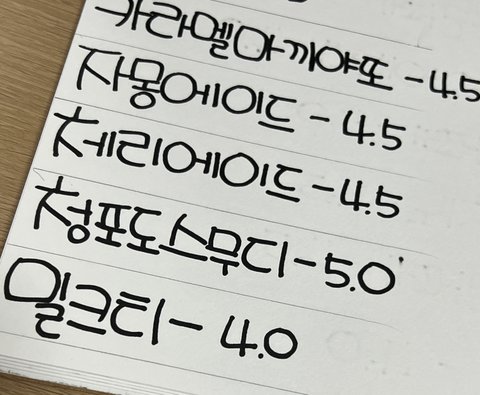 카라멜마끼야또 - 4.5
자몽에이드 - 4.5
체리에이드 - 4.5
청포도스무디 - 5.0
밀크티 - 4.0